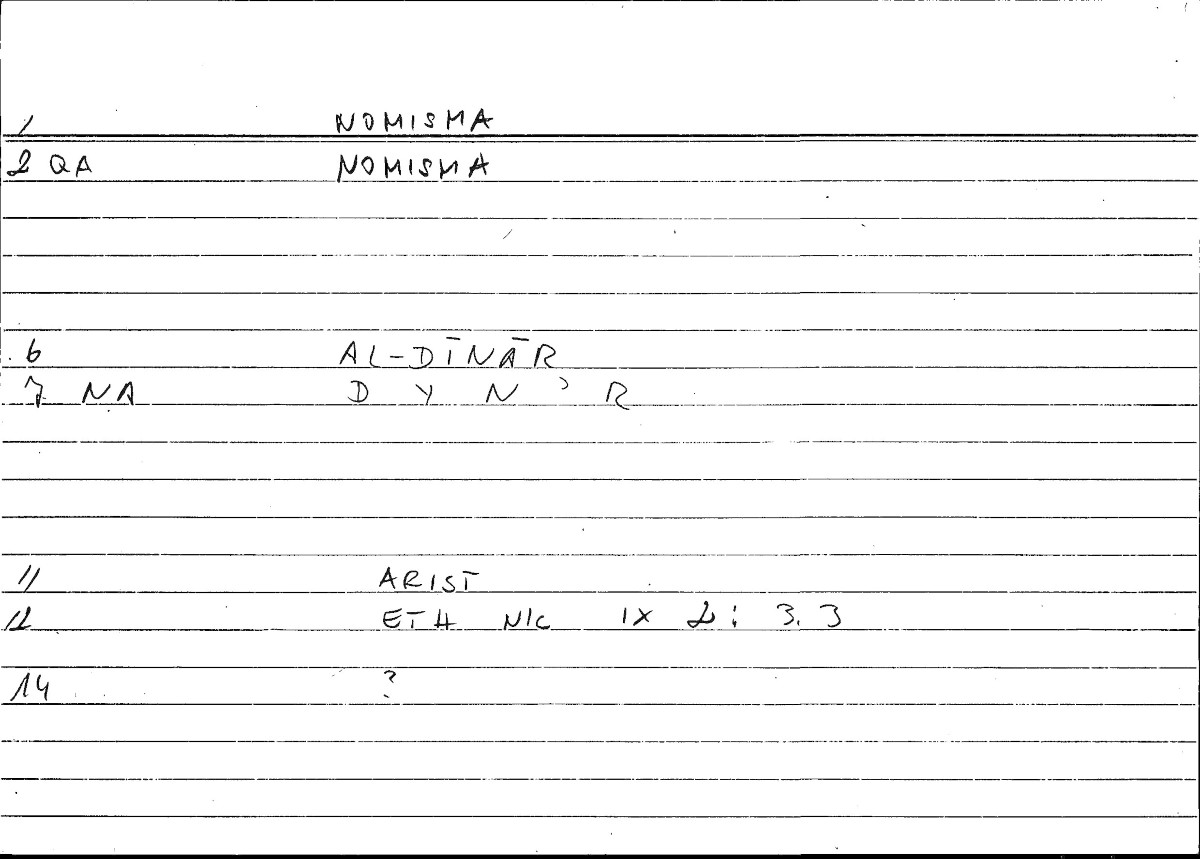 1 NOMISMA
2 QA NOMISMA
6 AL-DĪNĀR
7 NA D Y N ʾ R
11 ARIST
12 ETH NIC IX 2: 3.3
14 ?